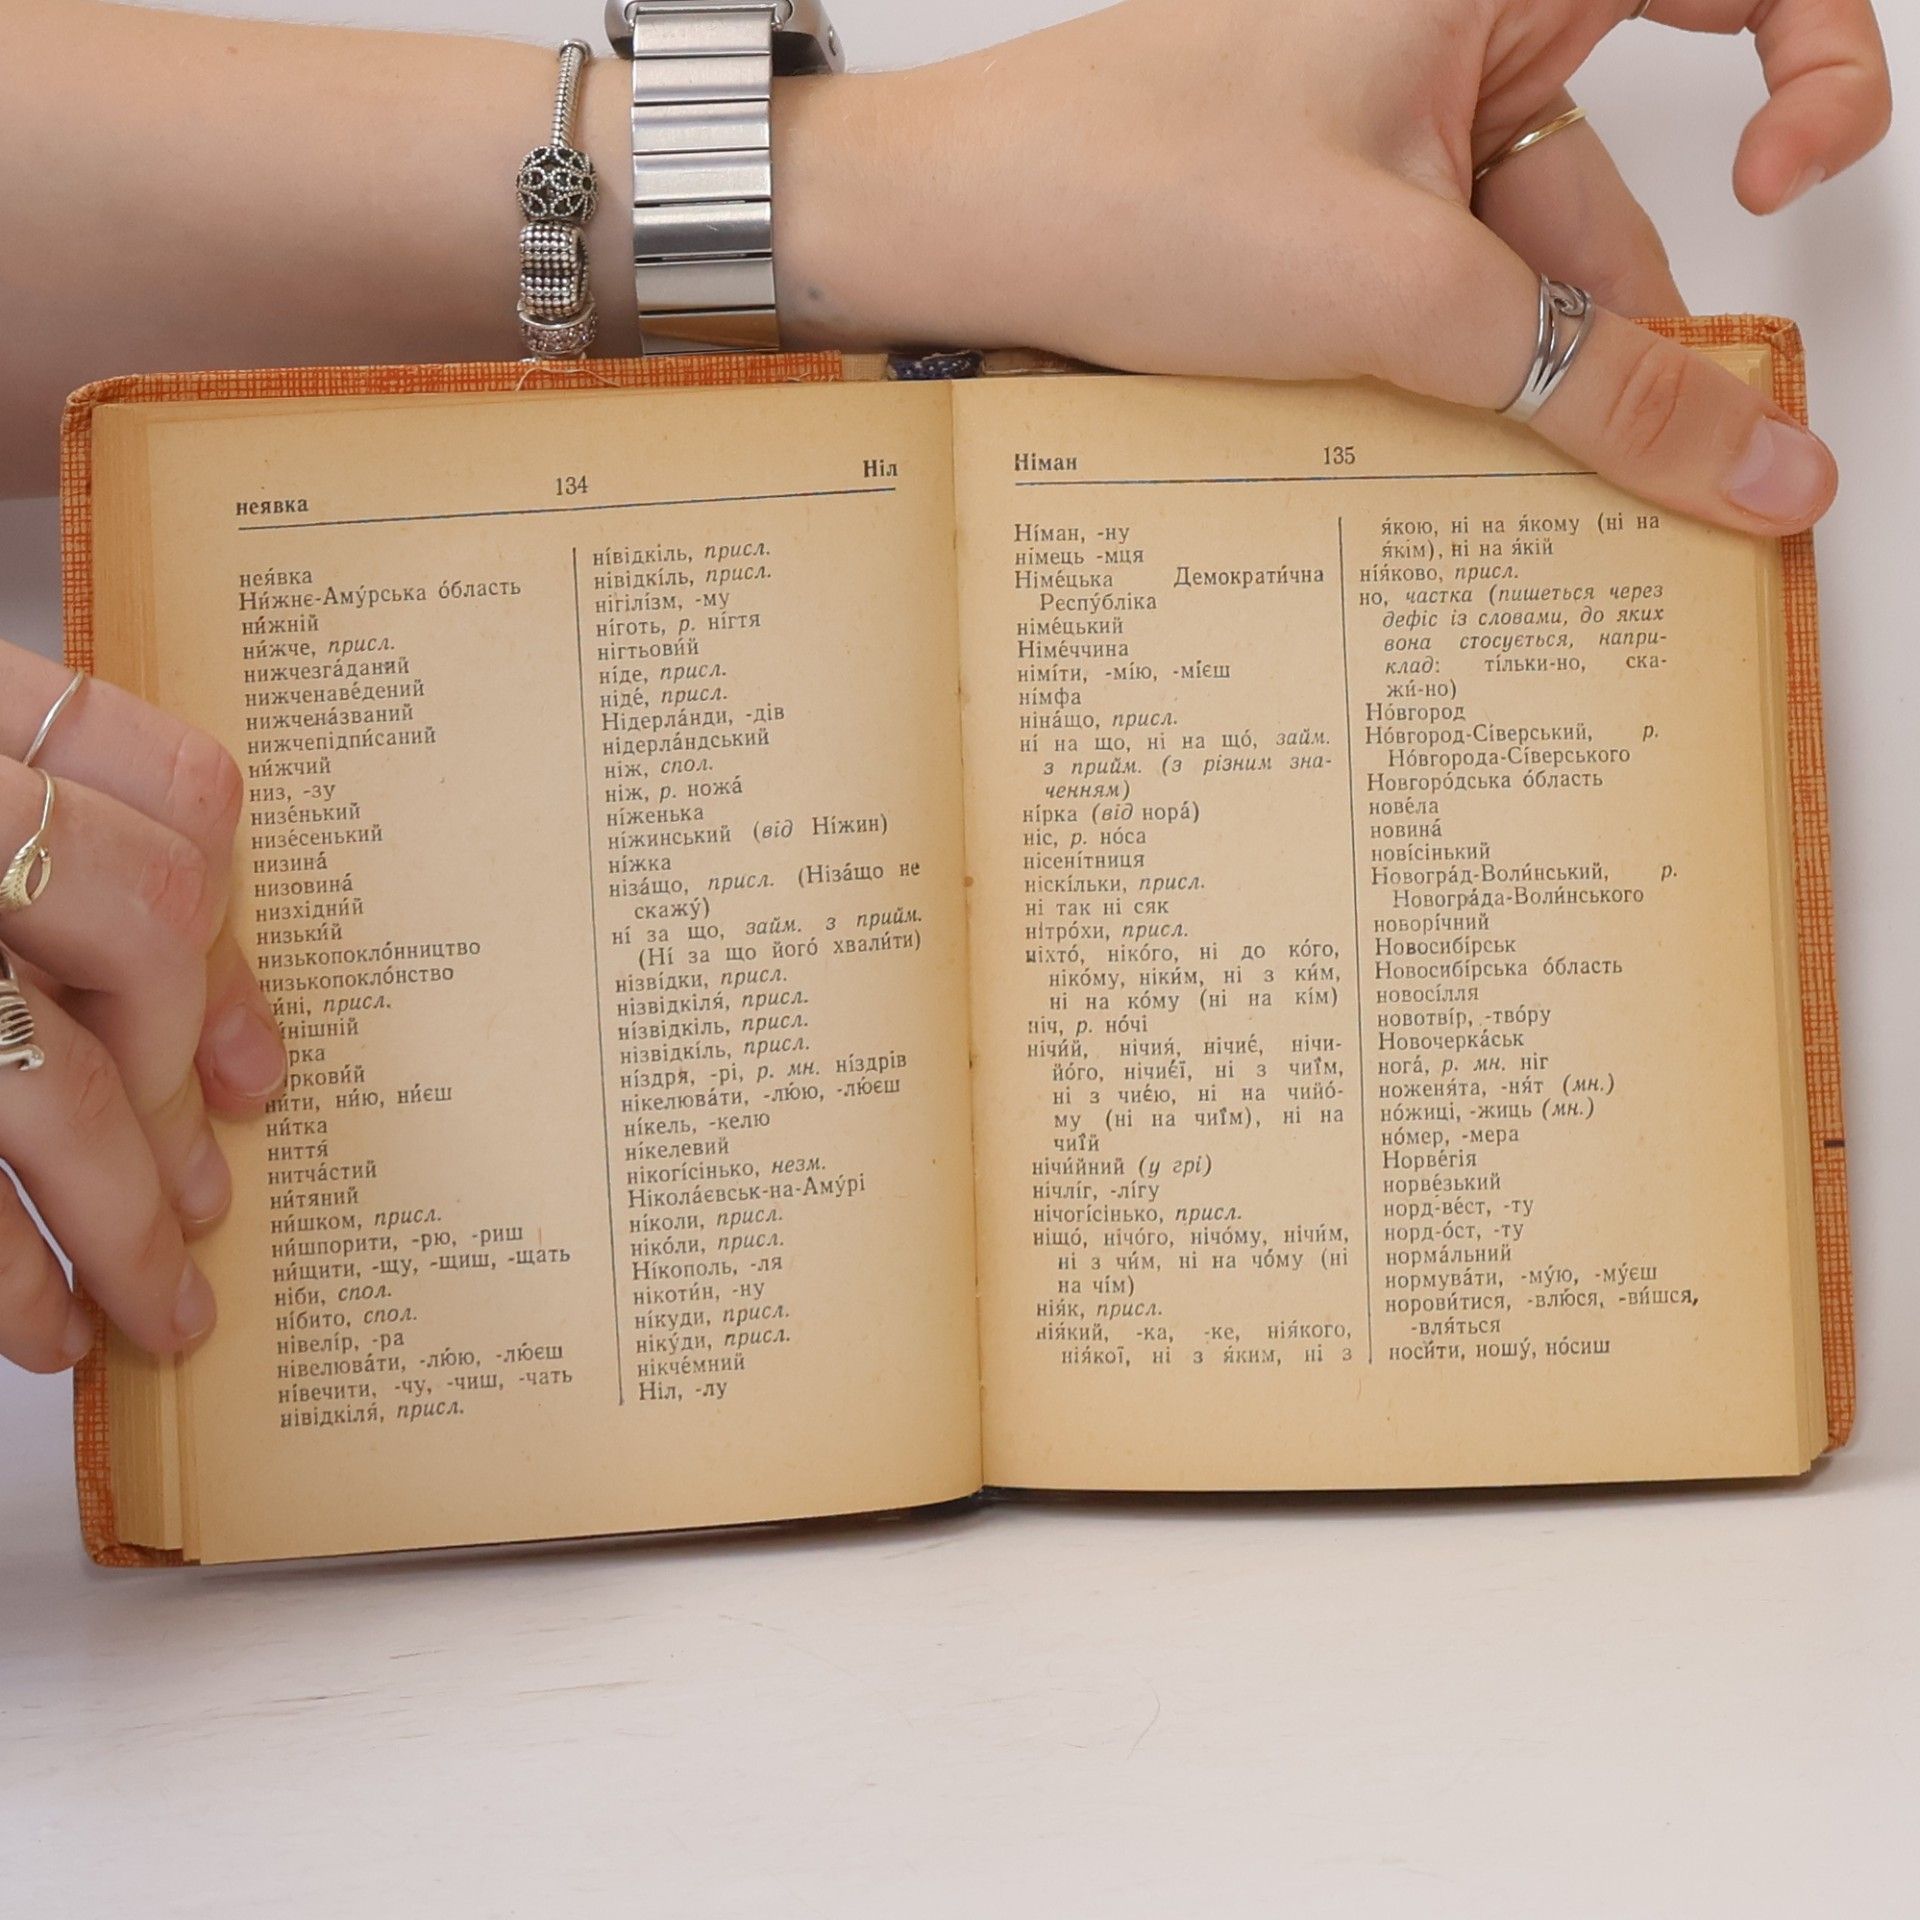 неявка 134 Ніл
нея́вка
Ни́жнє-Аму́рська о́бласть
ни́жній
ни́жче, присл.
нижчезга́даний
нижченаве́дений
нижчена́званий
нижчепідпи́саний
ни́жчий
низ, -зу
низе́нький
низе́сенький
низина́
низовина́
низхідни́й
низьки́й
низькопокло́нництво
низькопокло́нство
и́ні, присл.
и́нішній
рка
ркови́й
ни́ти, ни́ю, ни́єш
ни́тка
ниття́
нитча́стий
ни́тяний
ни́шком, присл.
ни́шпорити, -рю, -риш
ни́щити, -щу, -щиш, -щать
ні́би, спол.
ні́бито, спол.
нівелі́р, -ра
нівелюва́ти, -лю́ю, -лю́єш
ні́вечити, -чу, -чиш, -чать
нівідкіля́, присл.
ні́відкіль, присл.
нівідкі́ль, присл.
нігілі́зм, -му
ні́готь, р. ні́гтя
нігтьови́й
ні́де, присл.
ніде́, присл.
Нідерла́нди, -дів
нідерла́ндський
ніж, спол.
ніж, р. ножа́
ні́женька
ні́жинський (від Ні́жин)
ні́жка
ніза́що, присл. (Ніза́що не
скажу́)
ні́ за що, займ. з прийм.
(Ні́ за що його́ хвали́ти)
нізві́дки, присл.
нізвідкіля́, присл.
ні́звідкіль, присл.
нізвідкі́ль, присл.
ні́здря, -рі, р. мн. ні́здрів
нікелюва́ти, -лю́ю, -лю́єш
ні́кель, -келю
ні́келевий
нікогі́сінько, незм.
Нікола́євськ-на-Аму́рі
ні́коли, присл.
ніко́ли, присл.
Ні́кополь, -ля
нікоти́н, -ну
ні́куди, присл.
ніку́ди, присл.
нікче́мний
Ніл, -лу
Німан 135
Ні́ман, -ну
ні́мець -мця
Німе́цька Демократи́чна
Респу́бліка
німе́цький
Німе́ччина
німі́ти, -мі́ю, -мі́єш
ні́мфа
ніна́що, присл.
ні́ на що, ні на що́, займ.
з прийм. (з різним зна-
ченням)
ні́рка (від нора́)
ніс, р. но́са
нісені́тниця
ніскі́льки, присл.
ні так ні сяк
нітро́хи, присл.
ніхто́, ніко́го, ні до ко́го,
ніко́му, ніки́м, ні з ки́м,
ні на ко́му (ні на кі́м)
ніч, р. но́чі
нічи́й, нічия́, нічиє́, нічи-
йо́го, нічиє́ї, ні з чиї́м,
ні з чиє́ю, ні на чийо́-
му (ні на чиї́м), ні на
чиї́й
нічи́йний (у грі)
нічлі́г, -лі́гу
нічогі́сінько, присл.
ніщо́, нічо́го, нічо́му, нічи́м,
ні з чи́м, ні на чо́му (ні
на чі́м)
нія́к, присл.
нія́кий, -ка, -ке, нія́кого,
нія́кої, ні з я́ким, ні з
я́кою, ні на я́кому (ні на
я́кім), ні на я́кій
нія́ково, присл.
но, частка (пишеться через
дефіс із словами, до яких
вона стосується, напри-
клад: ті́льки-но, ска-
жи́-но)
Но́вгород
Но́вгород-Сі́верський, р.
Но́вгорода-Сі́верського
Новгоро́дська о́бласть
нове́ла
новина́
нові́сінький
Новогра́д-Воли́нський, р.
Новогра́да-Воли́нського
новорі́чний
Новосибі́рськ
Новосибі́рська о́бласть
новосі́лля
новотві́р, -тво́ру
Новочерка́ськ
нога́, р. мн. ніг
ноженя́та, -ня́т (мн.)
но́жиці, -жиць (мн.)
но́мер, -мера
Норве́гія
норве́зький
норд-ве́ст, -ту
норд-о́ст, -ту
норма́льний
нормува́ти, -му́ю, -му́єш
норови́тися, -влю́ся, -ви́шся,
-вля́ться
носи́ти, ношу́, но́сиш